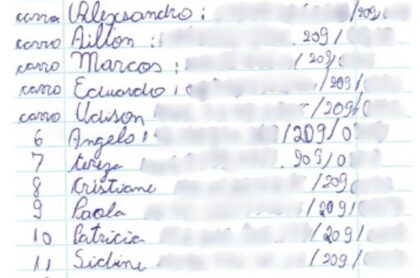 carro Alexsandro: /209/
carro Ailton: 209/
carro Marcos: /209/
carro Eduardo: /209/
carro Udison /209/
6 Angelo: /209/0
7 tereza 209/0
8 Cristiane /209/
9 Paola /209/
10 Patricia /209/
11 Sidine /209/